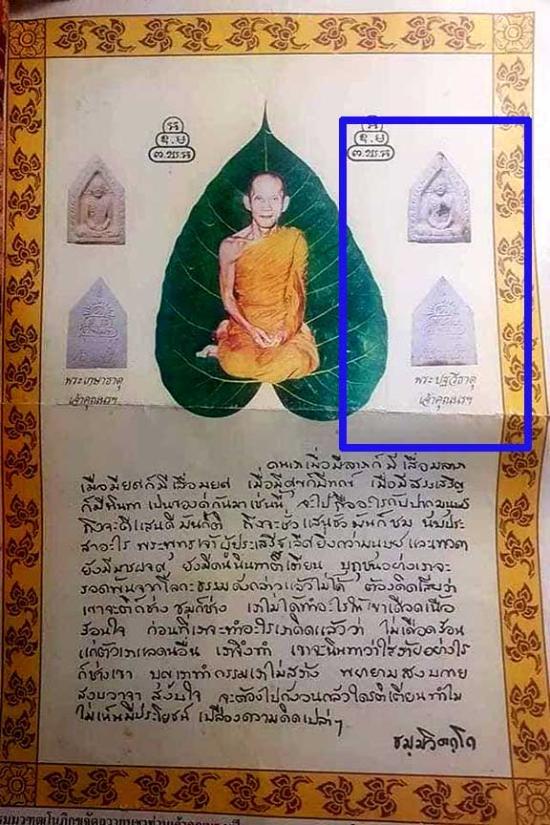 พระเกษาธาตุ
เจ้าคุณนรฯ
พระปฐวีธาตุ
เจ้าคุณนรฯ
คนเราเมื่อมีลาภก็มีเสื่อมลาภ
เมื่อมียศก็มีเสื่อมยศ เมื่อมีสุขก็มีทุกข์ เมื่อมีสรรเสริญ
ก็มีนินทา เป็นของคู่กันมาเช่นนี้ จะไปถืออะไรกับปากมนุษย์
ถึงจะดีแสนดีมันก็ติ ถึงจะชั่วแสนชั่วมันก็ชม นับประ
สาอะไร พระพุทธเจ้าผู้ประเสริฐเลิศยิ่งกว่ามนุษย์และเทวดา
ยังมีมารผจญ ยังมีคนนินทาติเตียน ปุถุชนอย่างเราจะ
รอดพ้นจากโลกะธรรมดังกล่าวแล้วไม่ได้ ต้องคิดเสียว่า
เขาจะติก็ช่าง ชมก็ช่าง เราไม่ได้ทำอะไรให้เขาเดือดเนื้อ
ร้อนใจ ก่อนที่เราจะทำอะไรเราคิดแล้วว่า ไม่เดือดร้อน
แก่ตัวเราและคนอื่น เราจึงทำ เขาจะนินทาว่าใส่ร้ายอย่างไร
ก็ช่างเขา บุญเราทำกรรมเราไม่สร้าง พยายามสงบกาย
สงบวาจา สงบใจ จะต้องไปกังวลกลัวใครติเตียนทำไม
ไม่เห็นมีประโยชน์ เปลืองความคิดเปล่าๆ
ธมฺมวิตกฺโก